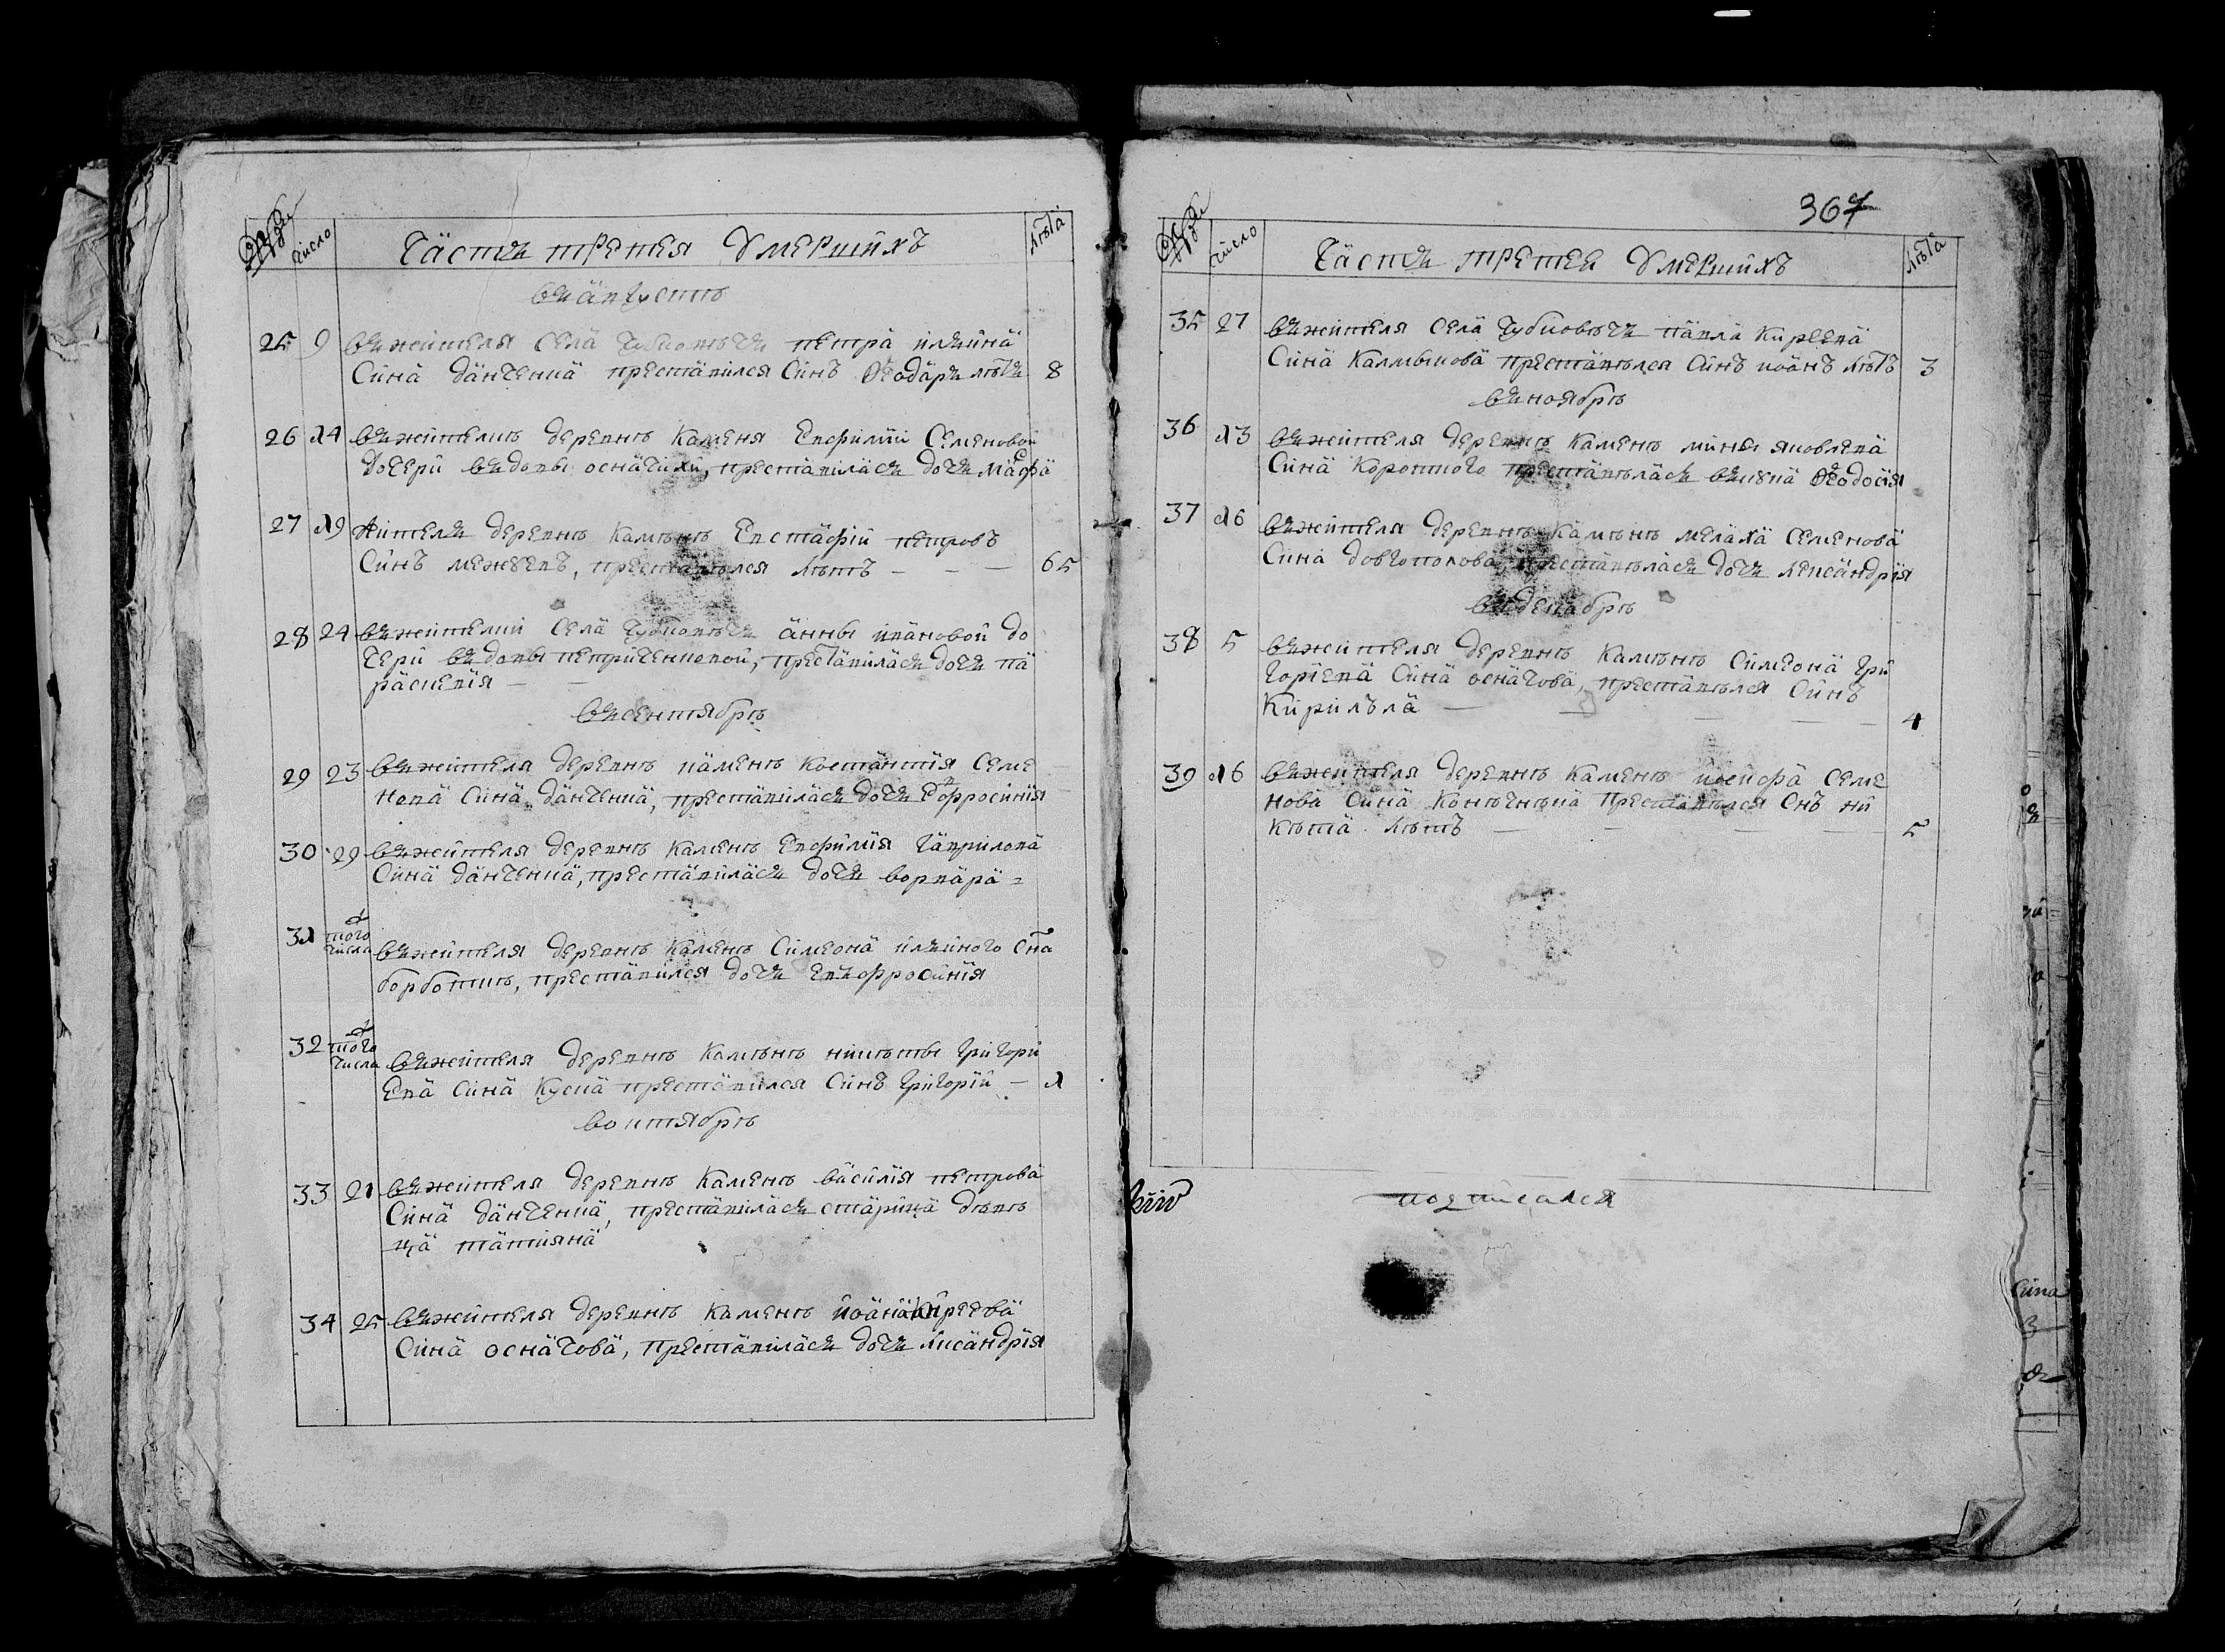 число
Частъ третея Умершихъ
лѣта
въ августѣ
25 9 въ жителя села Чубковѣчъ петра илъина
сина данченка преставился синъ Ѳеодаръ лѣтъ 8
26 14 въ жителкѣ деревнѣ Каменя Евфимiи Семеновой
дочери въдовы осначихи, преставиласъ дочъ марфа
27 19 Жителъ деревнѣ камѣнѣ Евстафiй петровъ
Синъ межуевъ, преставѣлся лѣтъ — — — 65
28 24 въ жителки села Чубковѣчъ анны ивановой до
чери въдовы петриченковой, преставиласъ дочъ па
раскевiя —
въ сентябрѣ
29 23 въ жителя деревнѣ каменѣ костантiя Семе
нова сина данченка, преставиласъ дочъ Евфросинiя
30 29 въ жителя деревнѣ каменѣ Евфимiя гаврилова
Сина данченка, преставиласъ дочъ ворвара =
31 того числа въ жителя деревнѣ каменѣ Симеона илъиного сна
борботкѣ, преставился дочъ Евъфросинiя
32 того числа въ жителя деревнѣ камѣнѣ никѣты григори
Ева сина куска преставился синъ григорiй — 1
во октябрѣ
33 21 въ жителя деревнѣ каменѣ василiя петрова
Сина данченка, преставиласъ старика дѣвѣ
ца татiяна
34 25 въ жителя деревнѣ каменѣ иоана киреева
Сина осначова, преставиласъ дочъ лисандрiя
367
число
Частъ третея Умершихъ
лѣта
35 27 въ жителя села чубковѣчъ павла Киреева
Сина Калмыкова преставѣлся синъ иоанъ лѣтъ 3
въ ноябрѣ
36 13 въ жителя деревнѣ каменѣ мины яковлева
Сина короткого преставѣласъ вънука Ѳеодосiя
37 16 въ жителя деревнѣ камѣнѣ мелаха семенова
Сина довгополова, преставѣласъ дочъ леисандрiя
въ декабрѣ
38 5 въ жителя деревнѣ камѣнѣ Симеона гри
гориева сина осначова, преставѣлся синъ
Кирилъла — — — — — 4
39 16 въ жителя деревнѣ каменѣ иосифа семе
нова сина преставѣлся снъ ни
кѣта лѣтъ — — — — 5
подписался